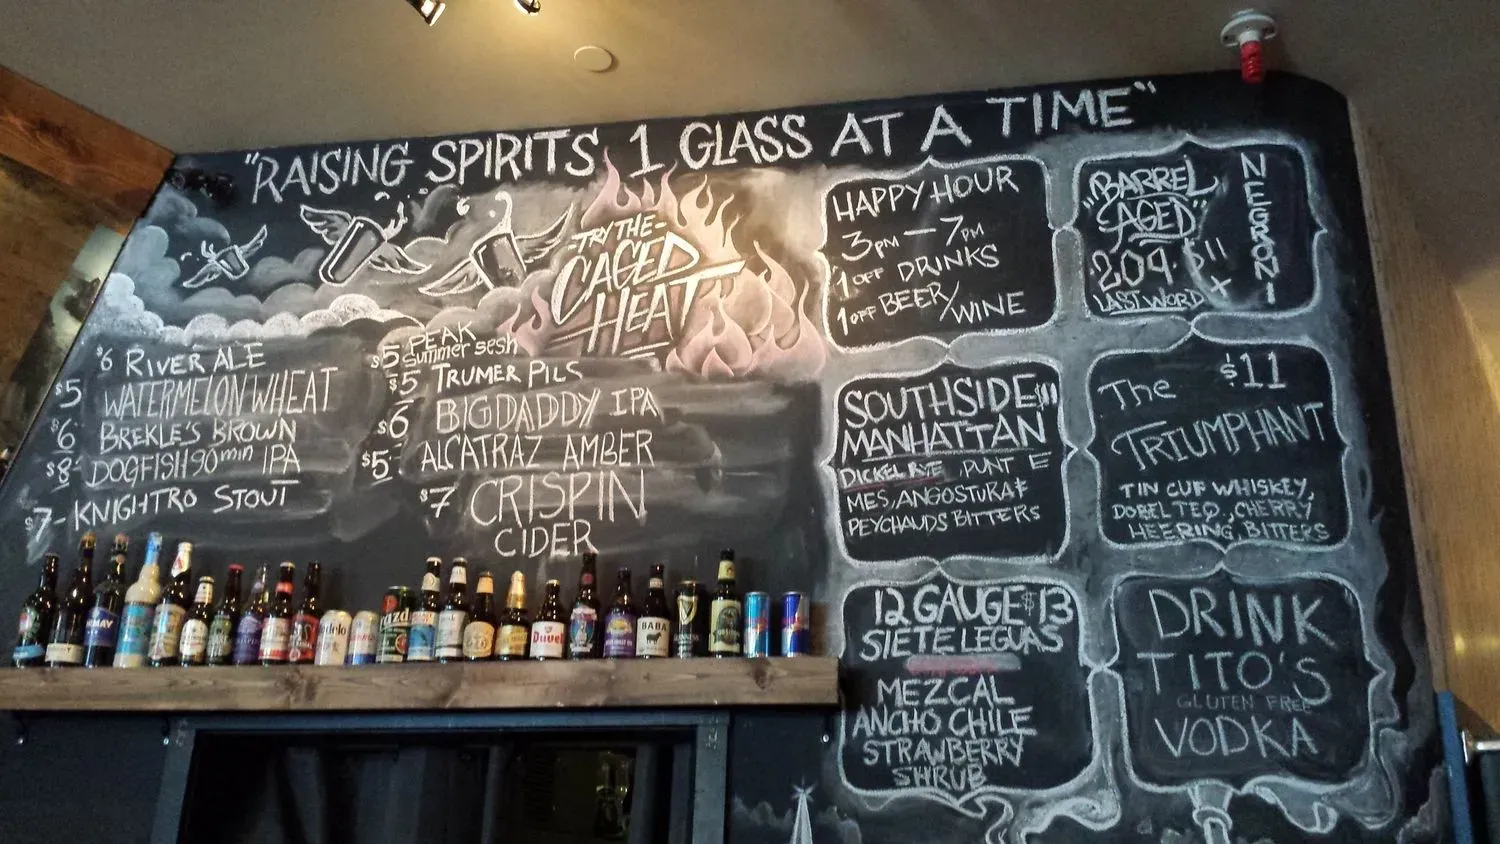 "RAISING SPIRITS 1 GLASS AT A TIME"
-TRY THE-
CAGED
HEAT
$6 RIVER ALE
$5 WATERMELON WHEAT
$6 BREKLE'S BROWN
$8 DOGFISH 90 min IPA
$7- KNIGHTRO STOUT
$5 PEAK
Summer sesh
$5 TRUMER PILS
$6 BIG DADDY IPA
$5 ALCATRAZ AMBER
$7 CRISPIN
CIDER
HAPPY HOUR
3PM — 7PM
1 OFF DRINKS
1 OFF BEER/
WINE
"BARREL
AGED"
NEGRONI
LAST WORD
SOUTHSIDE
MANHATTAN
DICKEL RYE, PUNT E
MES, ANGOSTURA &
PEYCHAUDS BITTERS
The $11
TRIUMPHANT
TIN CUP WHISKEY,
DOBEL TEQ., CHERRY
HEERING, BITTERS
12 GAUGE $13
SIETE LEGUAS
MEZCAL
ANCHO CHILE
STRAWBERRY
SHRUB
DRINK
TITO'S
GLUTEN FREE
VODKA
Duvel
BABA